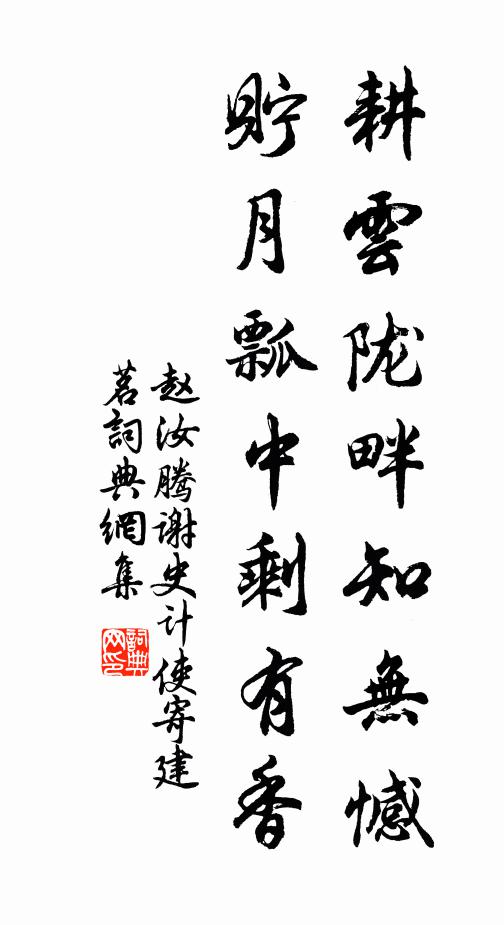 耕雲陇畔知無憾
貯月瓢中剩有香
赵汝腾謝史计使寄建
茗詞典網集
詞典
网印